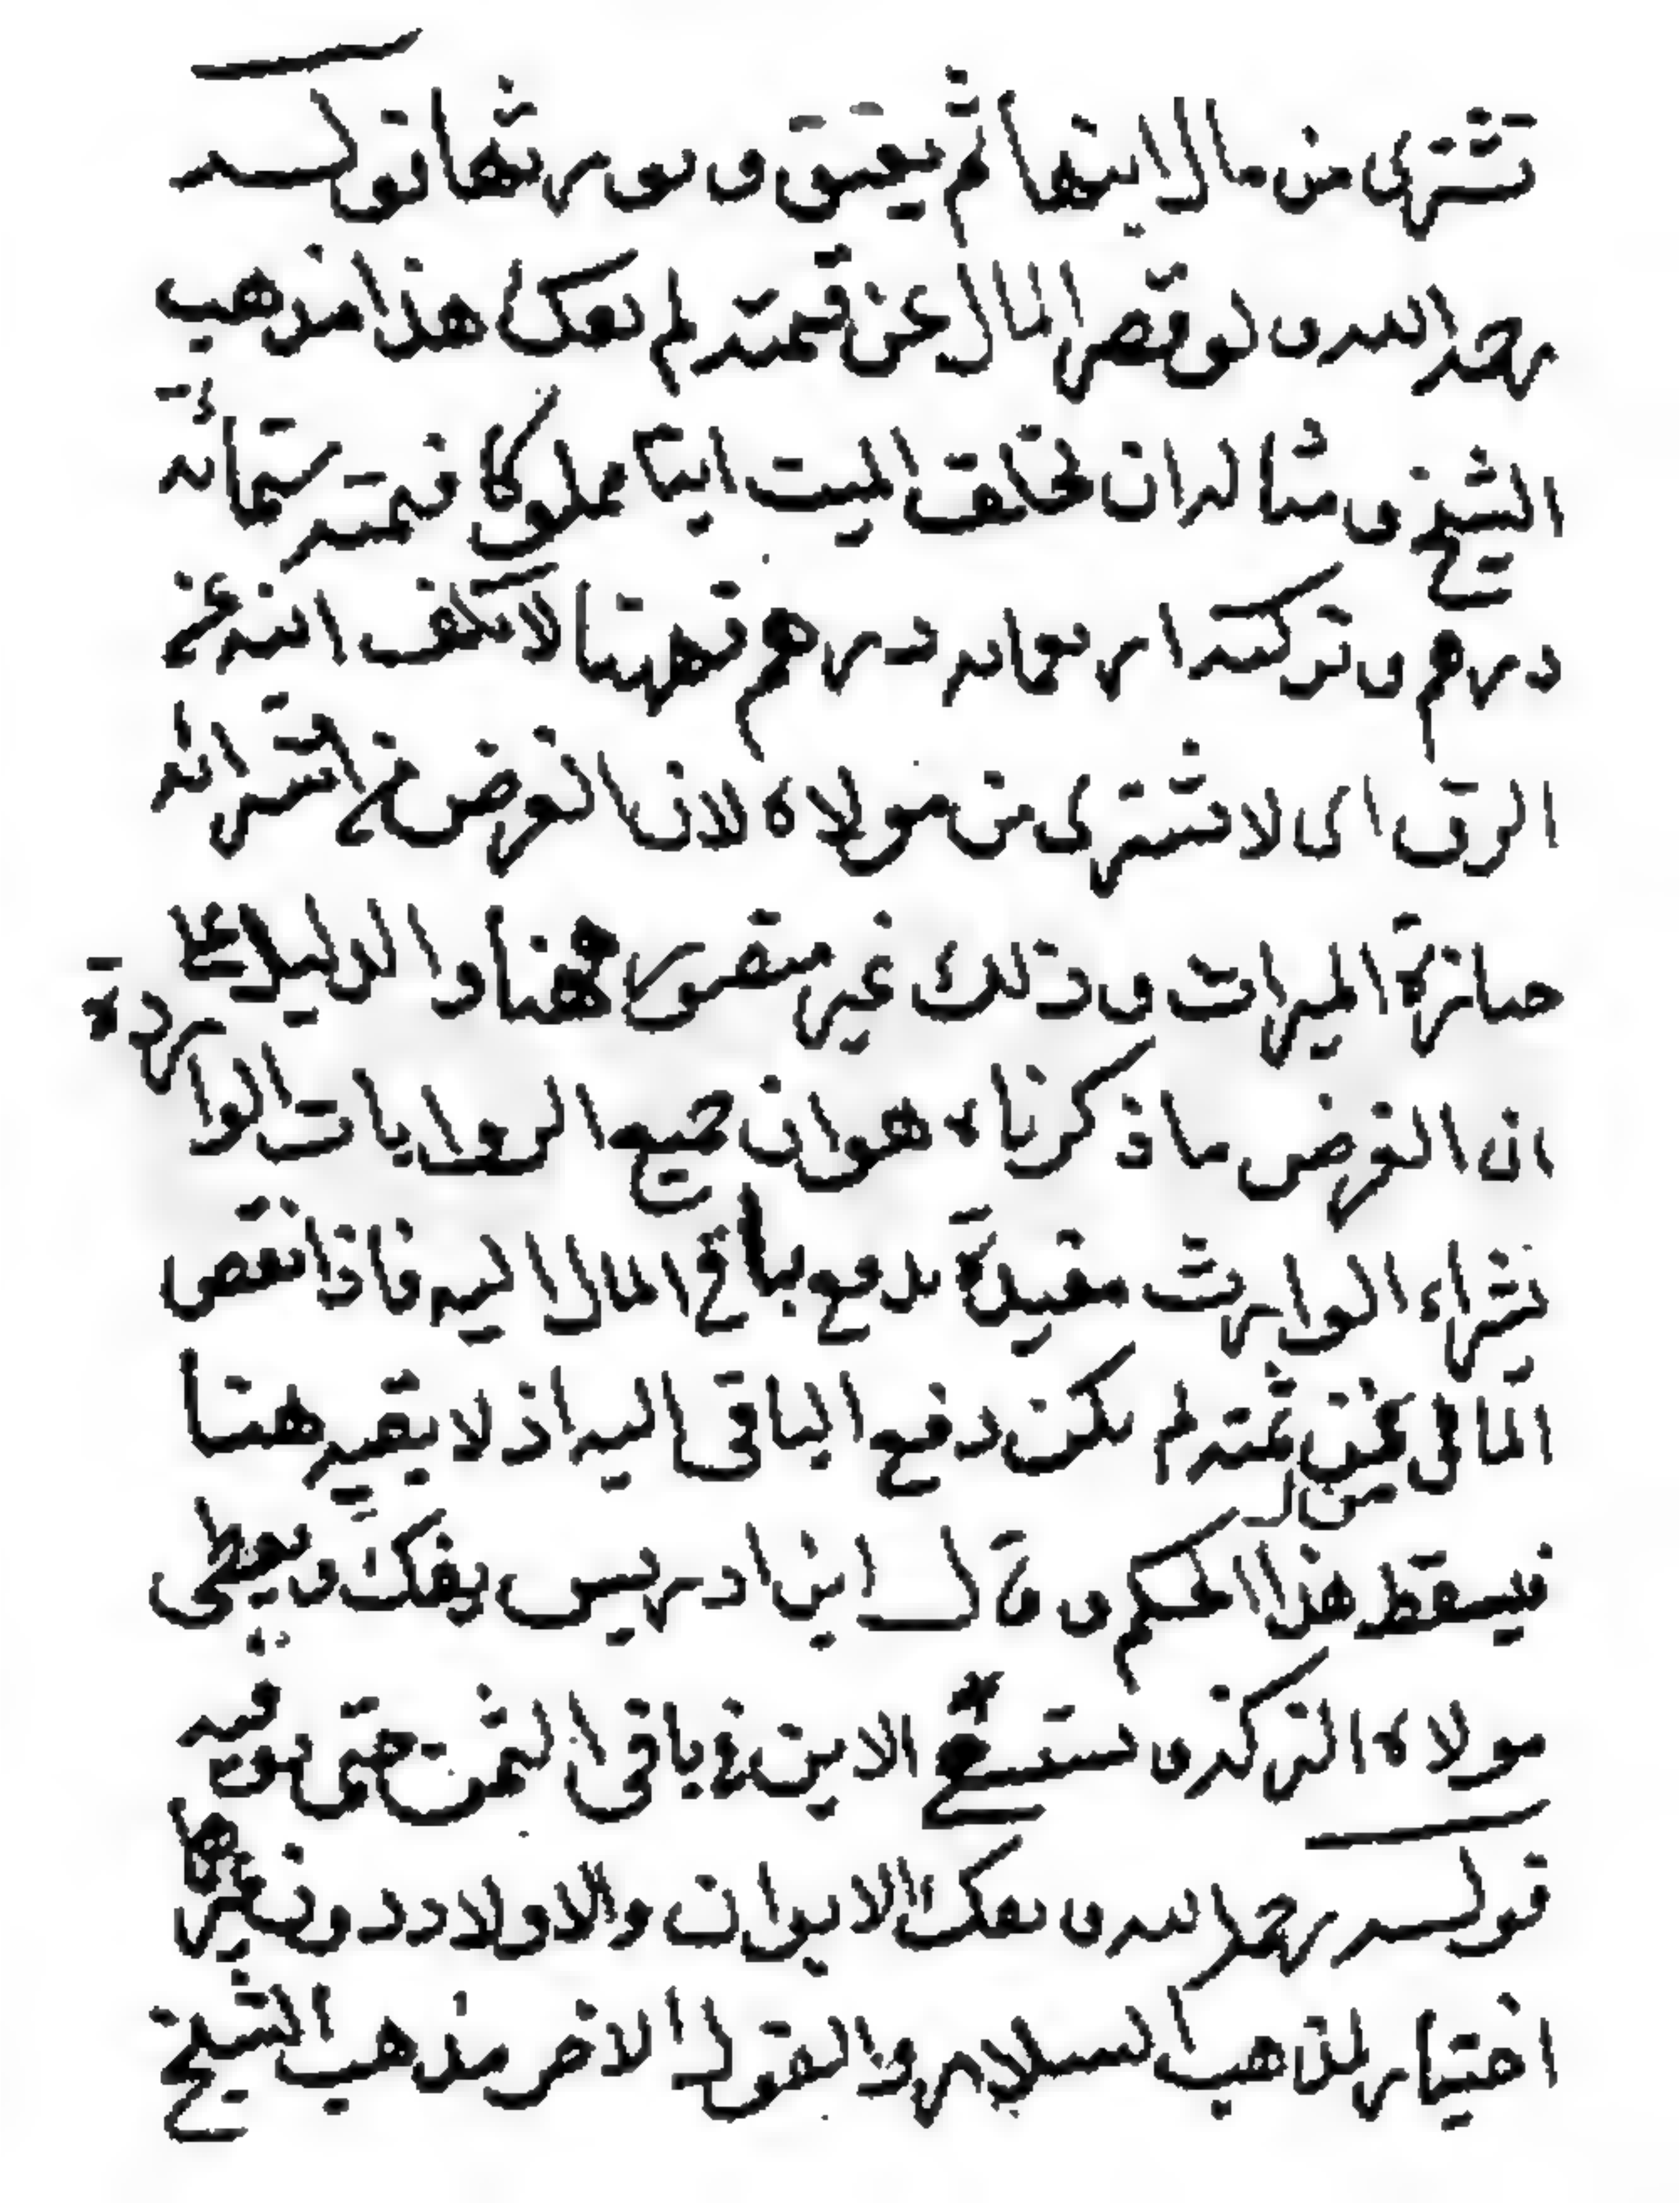 تشترى من مال ابنها ثم يعتق و يورثها قوله
رحمه الله و لو قصر المال عن قيمته لم يفك هذا مذهب
الشيخ و مثاله ان تخلف الميت ابنا مملوكا قيمته ستمائة
درهم و تركته اربعمائه درهم فههنا لا يكلف ابنه عن
الرق اى لا تشترى من مولاه لان الغرض من اشترائه
حيازة الميراث و ذلك غير متصور ههنا و الدليل على
ان الغرض ما ذكرناه هو ان جميع الروايات الواردة
بشراء الوارث مقيدة بدفع باقي المال اليه فاذا نقص
المال عن ثمنه لم يكن دفع الباقى اليه اذ لا بقيه هنا
فيسقط هذا الحكم و قال ابن ادريس يفك و يعطى
مولاه التركة و يستسعى الابن في باقى الثمن حتى يوفيه
قوله رحمه الله و يفك الابوان والاولاد دون غيرهما
اختيار لمذهب السلار والقول الاخر مذهب الشيخ